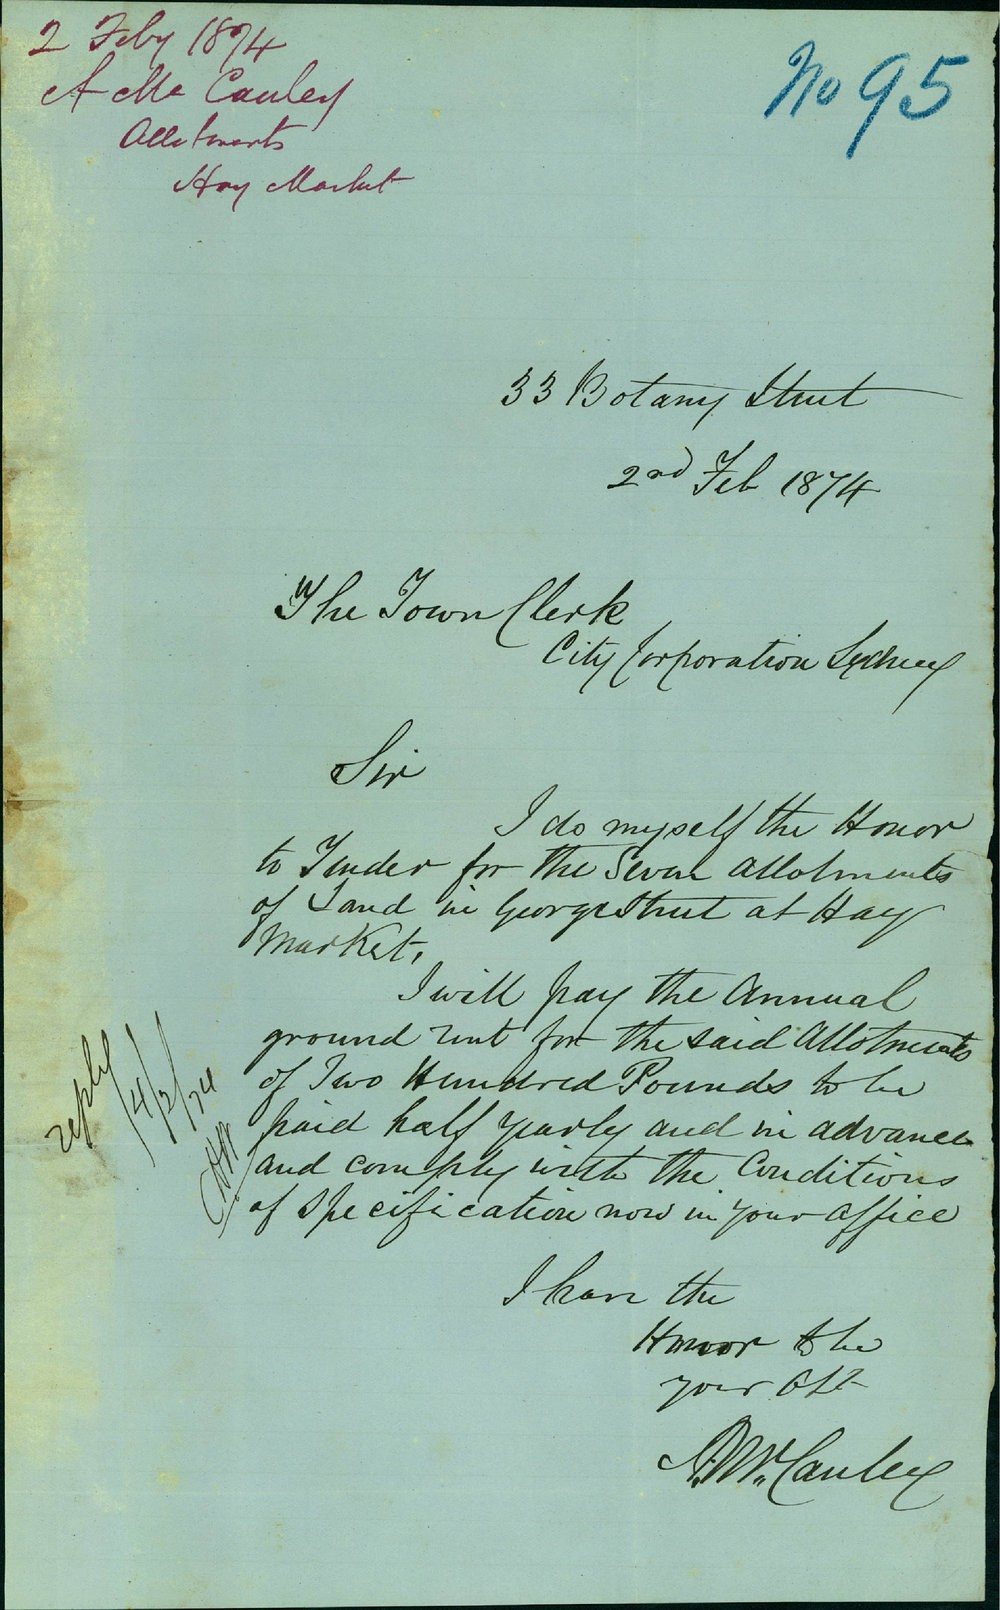 2 Feby 1874
A Mc Cauley
Allotments
Hay Market
No 95
33 Botany Street
2nd Feb 1874
The Town Clerk
City Corporation Sydney
Sir
I do myself the Honor
to Tender for the Seven allotments
of Land in George Street at Hay
Market,
I will pay the Annual
ground rent for the said Allotments
of Two Hundred Pounds to be
paid half yearly and in advance
and comply with the Conditions
of Specification now in your office
reply
14/2/74
I have the
Honor to be
your Obt
A. Mc. Cauley